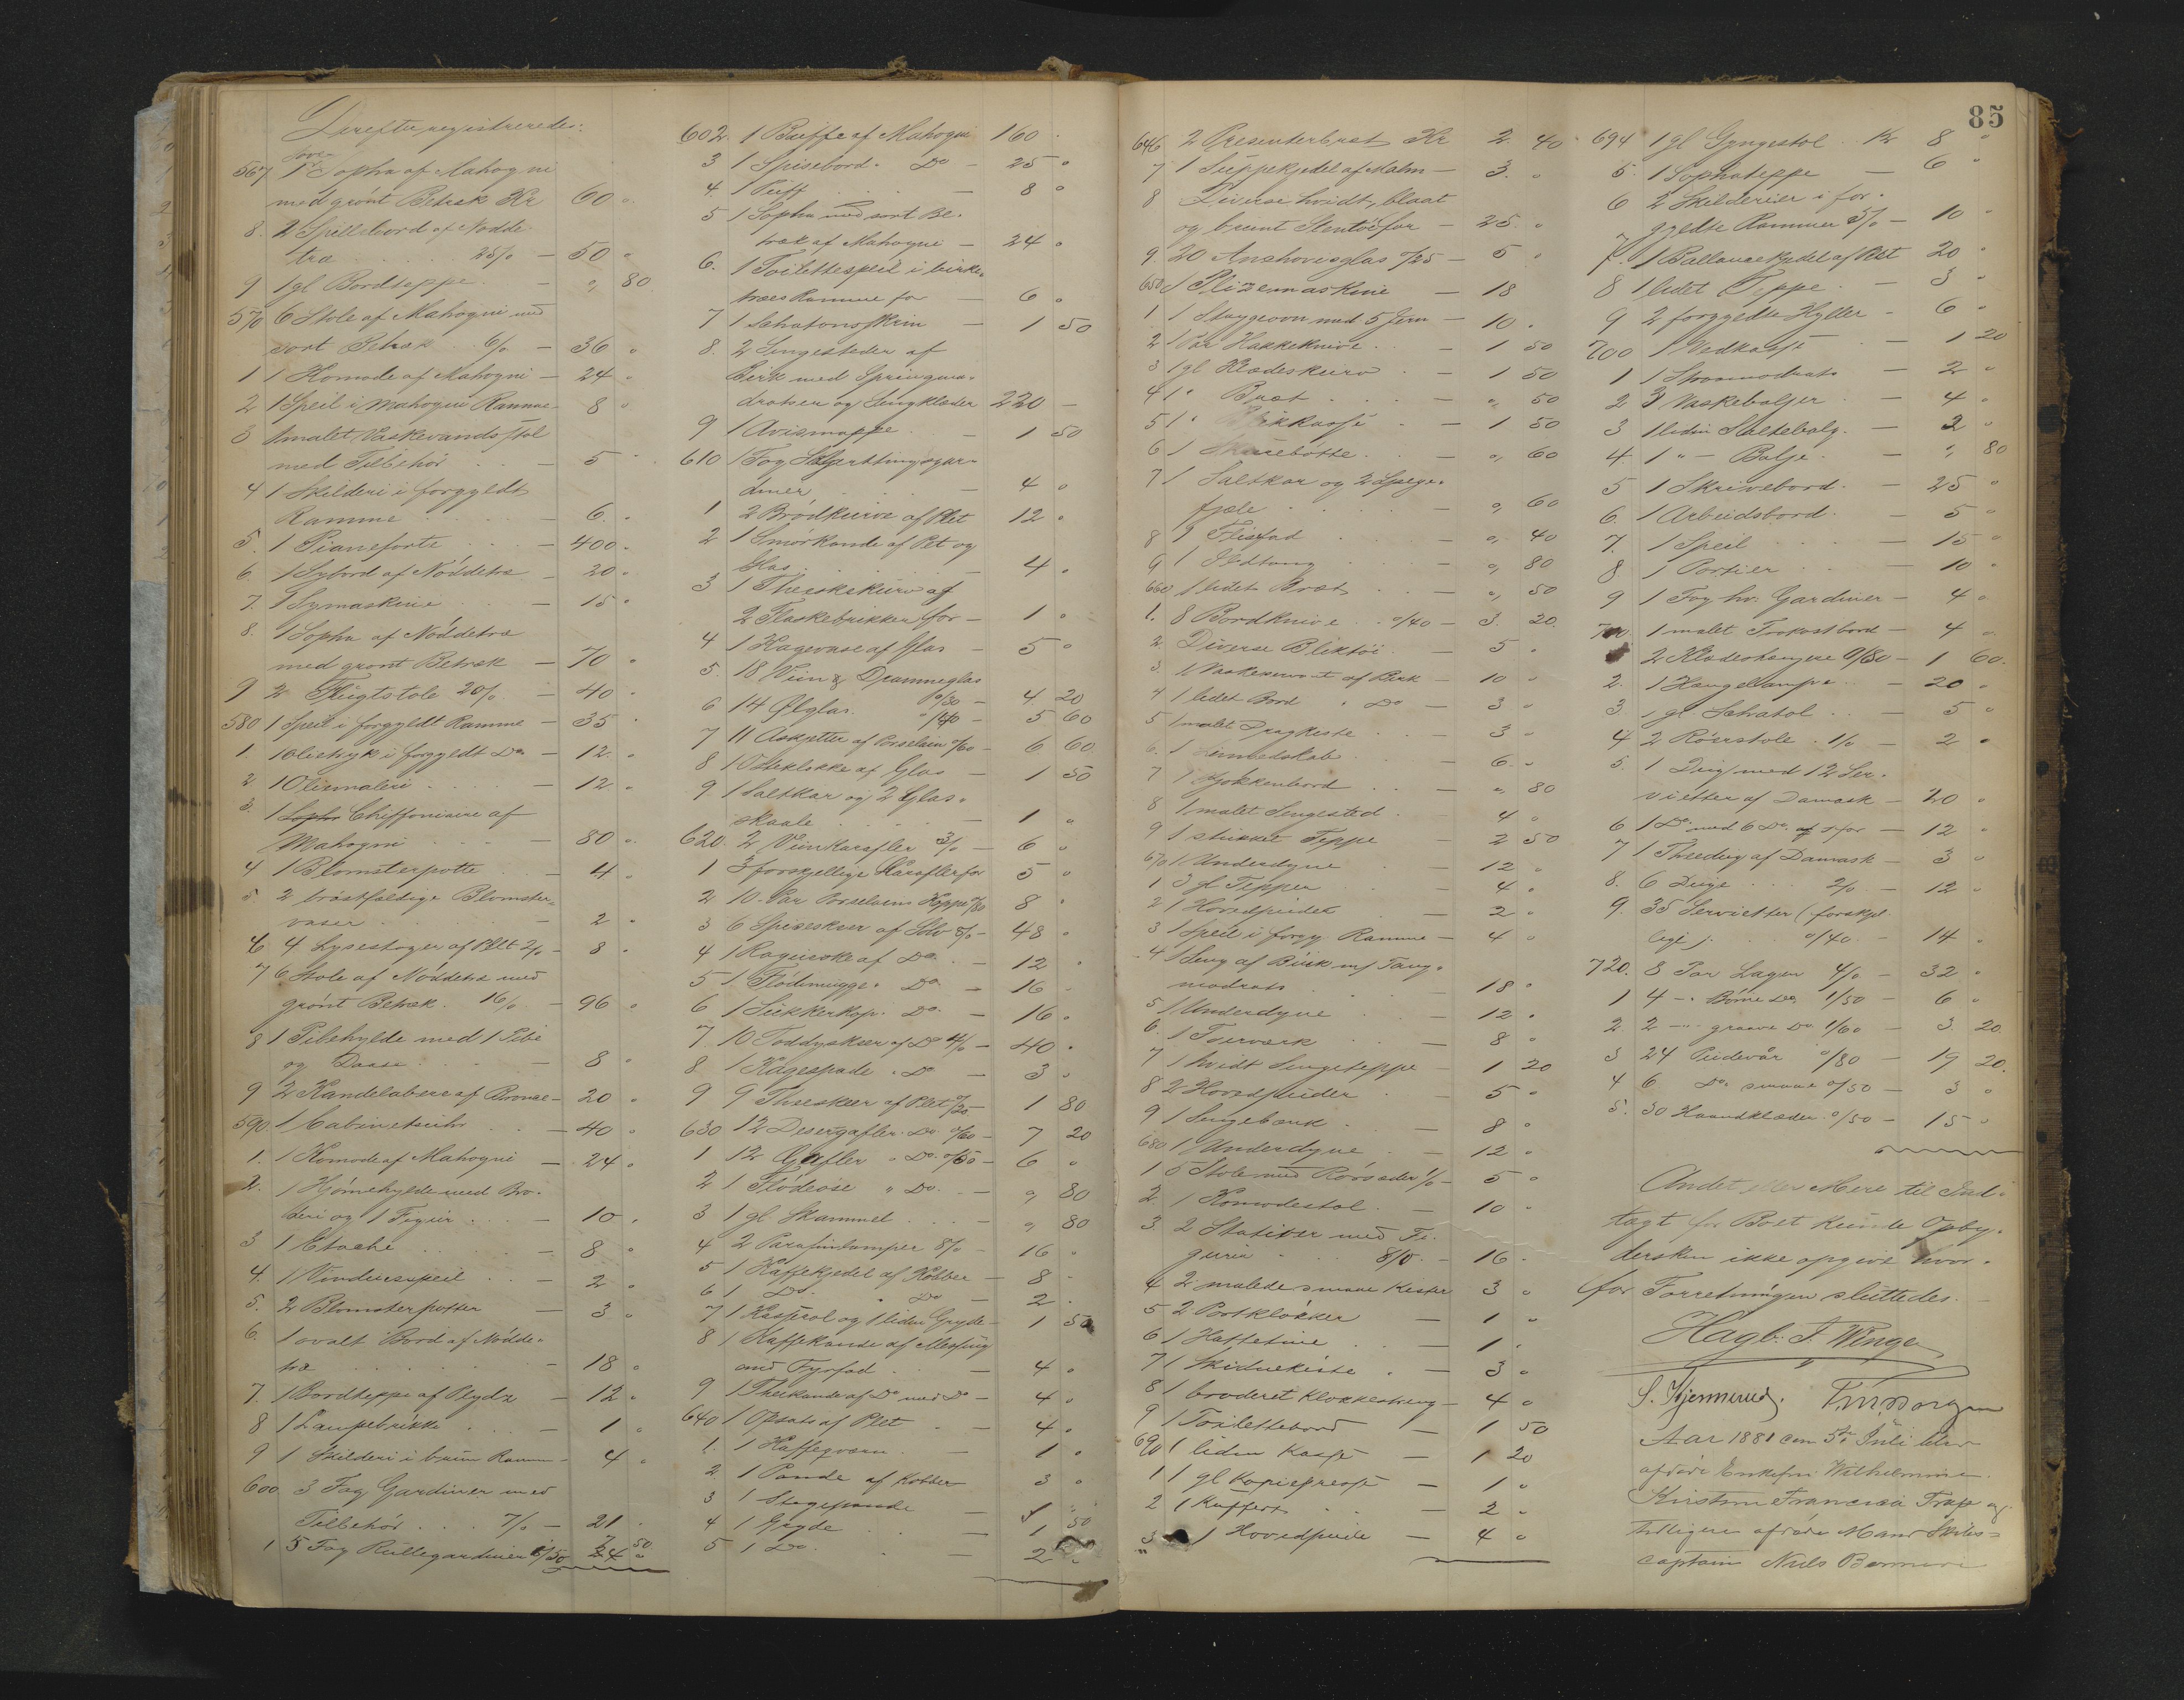 Derefter registreredes:
567 1 Sopha af Mahogni
med grønt Betræk Kr 60 "
8. 2 Spillebord af Nødde-
træ . . . 25/0 — 50 "
9 1 gl Bordteppe . — " 80
570 6 Stole af Mahogni med
sort Betræk . 6/0 — 36 "
1 1 Komode af Mahogni — 24 "
2 1 Speil i Mahogni Ramme — 8 "
3 1 malet Vaskevandsstol
med Tilbehør . . — 5 "
4 1 Skilderi i forgyldt
Ramme . . . — 6 "
5. 1 Pianoforte . . — 400 "
6. 1 Sybord af Nøddetræ — 20 "
7. 1 Symaskine . . — 15 "
8. 1 Sopha af Nøddetræ
med grønt Betræk — 70 "
9 2 Flugtstole 20/0 — 40 "
580 1 Speil i forgyldt Ramme — 35 "
1. 1 Olietryk i forgyldt Do — 12 "
2 1 Oliemaleri . . . — 12 "
3. 1 Sopha Chiffoniaire af
Mahogni . . . — 80 "
4 1 Blomsterpotte . — 4 "
5. 2 brøstfældige Blomster-
vaser . . . — 2 "
6 4 Lysestager af Plet 2/0 — 8 "
7 6 Stole af Nøddetræ med
grønt Betræk . 16/0 — 96 "
8 1 Pibehylde med 1 Pibe
og Daase . . . — 8 "
9 2 Kandelabere af Bronce — 20 "
590. 1 Cabinetsuhr . . — 40 "
1. 1 Komode af Mahogni — 24 "
2. 1 Hjørnehylde med Bro-
deri og 1 Figur . . — 10 "
3 1 Etache . . . — 8 "
4. 1 Vinduesspeil . . — 2 "
5. 2 Blomsterpotter — 3 "
6. 1 ovalt Bord af Nødde-
træ . . . — 18 "
7. 1 Bordteppe af Plyds — 12 "
8 1 Lampebrikke . . — 1 "
9 1 Skilderi i brun Ramme — 4 "
600 3 Fag Gardiner med
Tilbehør . . . 7/0 — 21 "
1 5 Fag Rullegardiner 1/50 7 50
602. 1 Buffe af Mahogni 160 "
3 1 Spisebord " Do — 25 "
4. 1 Puff . . . — 8 "
5 1 Sopha med sort Be-
træk af Mahogni — 24 "
6. 1 Toilettespeil i birke-
træes Ramme for — 6 "
7 1 Schatonsskrin — 1 50
8. 2 Sengesteder af
Birk med Springma-
dratser og Sengklæder 220 —
9 1 Avismappe . . — 1 50
610 1 Fag
diner . . . — 4 "
1 2 Brødkurve af Plet 12 "
2 1 Smørkande af Plet og
Glas . . . 4 "
3 1 Theeskekurv af
2 Flaskebrikker for — 1 "
4 1 Kagevase af Glas — 5 "
5. 18 Viin & Dramneglas
0/30 — 4 20
6 14 Ølglas. "/40 — 5 60
7 11 Asketter af Porselain 0/60 — 6 60
8 1 Osteklokke af Glas — 1 50
9 1 Saltkar og 2 Glas-
skaale . . . — 1 "
620. 2 Viinkarafler 3/0 — 6 "
1 3 forskjellige Karafler for 5 "
2 10. Par Porselains Koppe 0/80 8 "
3 6 Spiseskeer af Sølv 8/0 — 48 "
4 1 Raguske af Do — 12 "
5 1 Flødemugge " Do — 16 "
6 1 Sukkerkop " Do — 16 "
7 10 Toddyskeer af Do 4/0 — 40 "
8 1 Kagespade " Do — 3 "
9 9 Theskeer af Plet 0/20 — 1 80
630 12 Desertgafler Do 0/60 — 7 20
1 12 Gafler " Do 0/50 — 6 "
2 1 Flødeøse " Do — " 80
3 1 gl Skammel . . — " 80
4 2 Parafinlamper 8/0 — 16 "
5 1 Kaffekjedel af Kobber — 8 "
6 1 Do " Do — 2 "
7 1 Kasserol og 1 liden Gryde — 1 50
8 1 Kaffekande af Messing
med Fyrfad . — 4 "
9 1 Theekande af Do med Do — 4 "
640 1 Opsats af Plet . — 4 "
1. 1 Kaffeqværn . — 1 "
2 1 Pande af Kobber 3 "
3 1 Stegepande — 1 50
4 1 Gryde . . — 1 50
5 1 Do . . — 2 "
85
646 2 Presenterbræt Kr 2 40
7 1 Suppekjedel af Malm — 3 "
8 Diverse hvidt, blaat
og brunt Stentøi for — 25 "
9 20 Anshovisglas "/25 — 5 "
650 1 Plisemaskine — 18
1 1 Strygeovn med 5 Jern — 10 "
2 1 Par Hakkeknive . — 1 50
3 1 gl Klædeskurv . — 1 50
4 1 " Bræt . . . — " 50
5 1 " — 1 50
6 1 — " 60
7 1 Saltkar og 2 Spege-
fjæle . . . — " 60
8 9 Flisfad . . — " 40
9 1 Ildtang . . — " 80
660 1 lidet Bræt . . — " 50
1. 8 Bordknive . . 0/40 — 3 20
2. Diverse Bliktøi . — 5 "
3. 1 af Birk — 10 "
4 1 lidet Bord " Do — 3 "
5 1 malet Dragkiste . — 3 "
6. 1 Linnedskab . . 6 "
7 1 Kjøkkenbord . . — " 80
8 1 malet Sengested . 4 "
9 1 strikket Teppe — 2 50
670 1 Underdyne — 12 "
1 3 gl Tepper . . 4 "
2 1 Hovedpude . — 2 "
3 1 Speil i forgy. Ramme — 4 "
4 1 Seng af Birk m/ Tang-
madrats . . — 18 "
5 1 Underdyne . — 12 "
6. 1 Overværk . . — 8 "
7 1 hvidt Sengeteppe — 1 20
8 2 Hovedpuder . — 5 "
9 1 Sengebænk . . — 8 "
680 1 Underdyne . — 12 "
1 5 Stole med Rørsæder 1/0 — 5 "
2 1 Komodestol . — 10 "
3. 2 Stativer med Fi-
gurer . . 8/0 — 16 "
4 2 malede smaae Kister 3 "
5 2 Portklokker — 1 "
6 1 Hattetine . . — 1 "
7 1 Skidnekiste . — 3 "
8 1 broderet Klokkestreng — 4 "
9 1 Toilettebord — 1 50
690 1 liden Kasse — 1 20
1 1 gl Kopiepresse — 1 "
2 1 Kuffert . . — 2 "
3 1 Hovedpude — 4 "
694 1 gl Gyngestol . Kr 8 "
5. 1 Sophateppe — 6 "
6 2 Skilderier i for-
gyldte Rammer 5/0 — 10 "
7. 1 Ballancekjedel af Plet 20 "
8 1 lidet Teppe . — 3 "
9 2 forgyldte Hyller — 6 "
700 1 Vedkasse . — 1 20
1 1 Straamadrats — 2 "
2 3 Vaskebaljer . — 4 "
3 1 liden Saltebalg . — 2 "
4. 1 " — Balje . — " 80
5 1 Skrivebord . — 25 "
6. 1 Arbeidsbord . — 5 "
7. 1 Speil . . . — 15 "
8. 1 Portier . . — 10 "
9 1 Fag hv. Gardiner — 4 "
710 1 malet Frokostbord — 4 "
2 Klædeshængere 0/80 — 1 60.
2. 1 Hængelampe . . — 20 "
3. 1 gl Schatol . . — 5 "
4 2 Rørstole . 1/0 — 2 "
5. 1 Dug med 12 Ser-
vietter af Damask — 20 "
6 1 Do med 6 Do for — 12 "
7 1 Theedug af Damask — 3 "
8. 6 Duge . . 2/0 — 12 "
9. 35 Servietter (forskjel-
lige). . . 0/40 — 14 "
720. 8 Par Lagen 4/0 — 32 "
1 4 — " Børne Do 1/50 — 6 "
2. 2 — " graave Do 1/60 — 3. 20.
3 24 Pudevår 0/80 — 19 20.
4 6 Do smaae 0/50 — 3 "
5. 30 Haandklæder 0/50 — 15 "
Andet eller Mere til Ind-
tægt for Boet kunde Opby-
dersken ikke opgive hvor-
for Forretningen sluttedes. —
Hagb: J. Winge
S. Hjemmerud.
Aar 1881 den 5te Juli blev
afdøde Enkefru Wilhelmine
Kirstine Francisca Trap og
tidligere afdøde Mand Skibs-
captain Niels